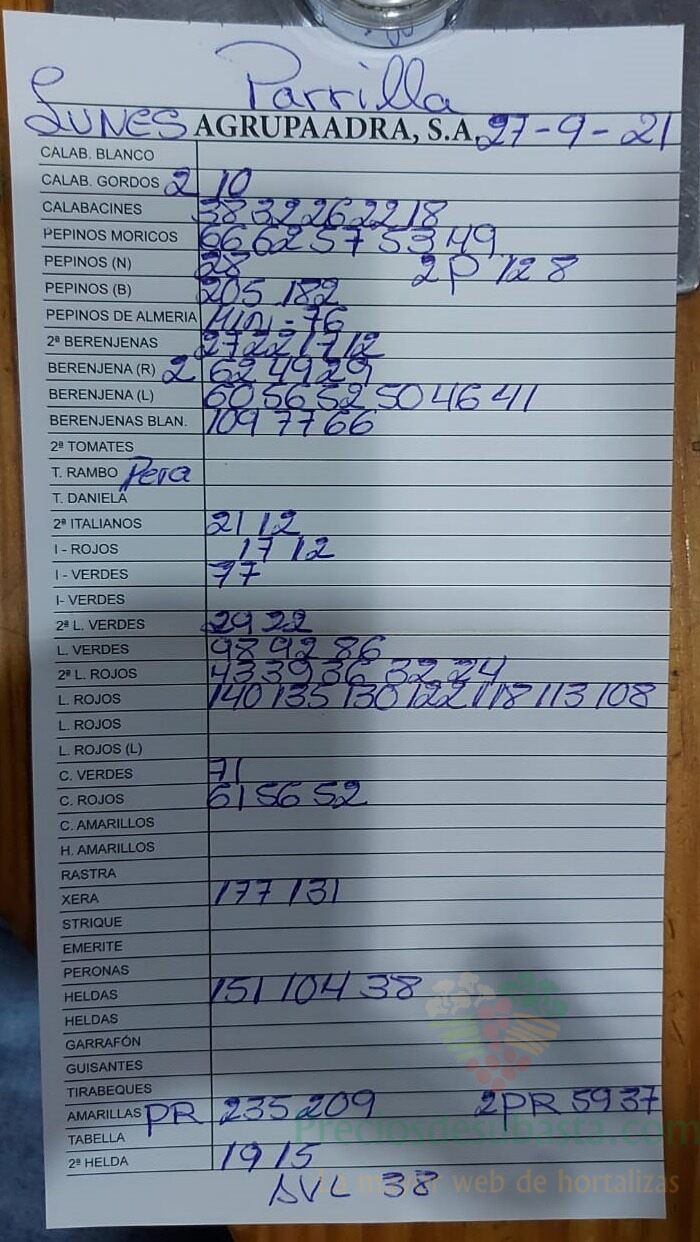 Parrilla
LUNES AGRUPAADRA, S.A. 27-9-21
CALAB. BLANCO
CALAB. GORDOS 2 10
CALABACINES 38 32 26 22 18
PEPINOS MORICOS 66 62 57 53 49
PEPINOS (N) 28 2P 128
PEPINOS (B) 205 182
PEPINOS DE ALMERIA MINI-76
2ª BERENJENAS 27 22 17 12
BERENJENA (R) 2 62 49 29
BERENJENA (L) 60 56 52 50 46 41
BERENJENAS BLAN. 109 77 66
2ª TOMATES
T. RAMBO Pera
T. DANIELA
2ª ITALIANOS 21 12
I - ROJOS 17 12
I - VERDES 77
I- VERDES
2ª L. VERDES 29 22
L. VERDES 98 92 86
2ª L. ROJOS 43 39 36 32 24
L. ROJOS 140 135 130 122 118 113 108
L. ROJOS
L. ROJOS (L)
C. VERDES 71
C. ROJOS 61 56 52
C. AMARILLOS
H. AMARILLOS
RASTRA
XERA 177 131
STRIQUE
EMERITE
PERONAS
HELDAS 151 104 38
HELDAS
GARRAFÓN
GUISANTES
TIRABEQUES
AMARILLAS PR 235 209 2PR 59 37
TABELLA
Preciosdesubasta.com
2ª HELDA 19 15
La mayor web de hortalizas
AVL 38